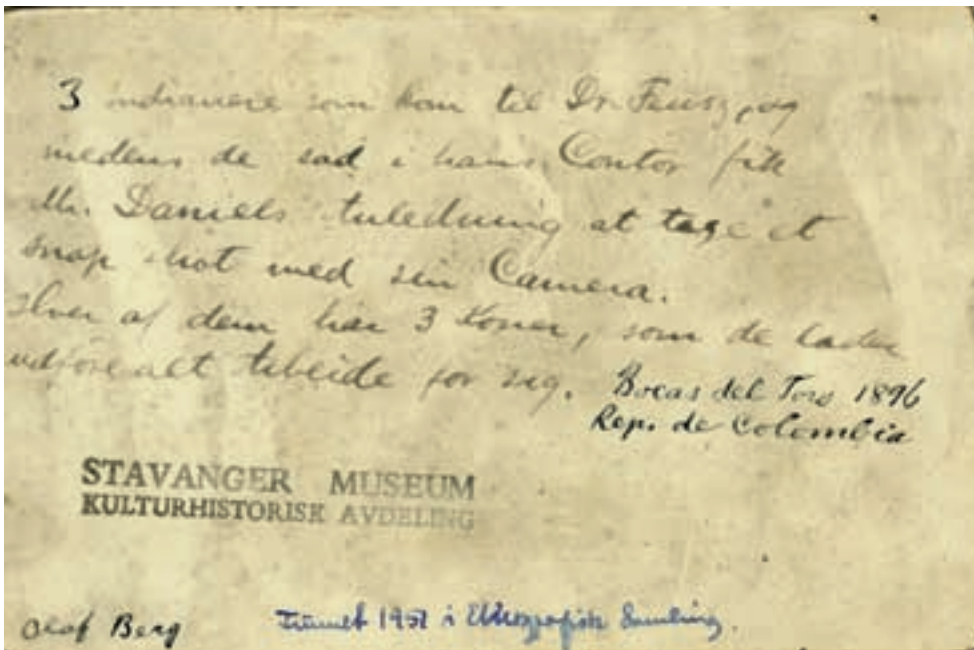 3 indianere som kom til Dr. Feusz, og
medens de sad i hans Contor fik
Mr. Daniels Anledning at tage et
snap shot med sin Camera.
Hver af dem har 3 Koner, som de lader
udføre alt Arbeide for sig.
Bocas del Toro 1896
Rep. de Colombia
STAVANGER MUSEUM
KULTURHISTORISK AVDELING
Olaf Berg
1957 i Etnografisk Samling.